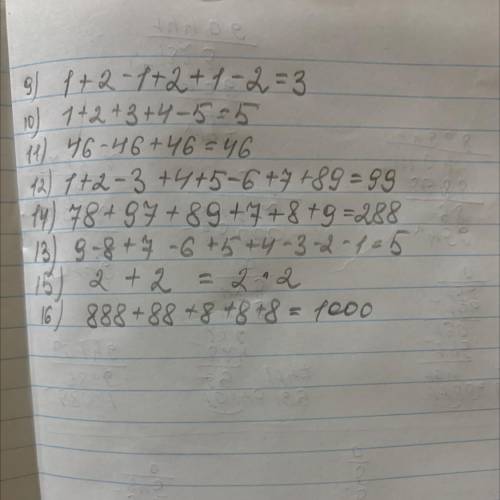 9) 1+2-1+2+1-2=3
10) 1+2+3+4-5=5
11) 46-46+46=46
12) 1+2-3+4+5-6+7+89=99
14) 78+97+89+7+8+9=288
13) 9-8+7-6+5+4-3-2-1=5
15) 2 + 2 = 2 · 2
16) 888+88+8+8+8=1000